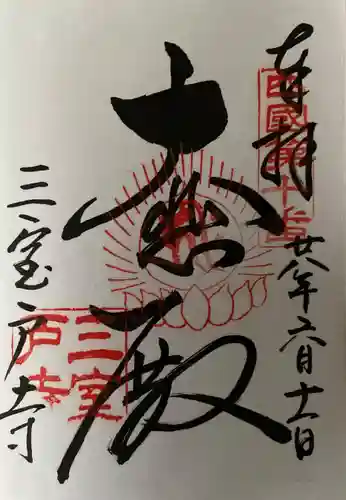 奉拝
廿八年六月十一日
西國第十番
大悲殿
三室戸寺
三室
戸寺